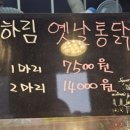 하림 옛날통닭
1마리 7500원
2마리 14,000원